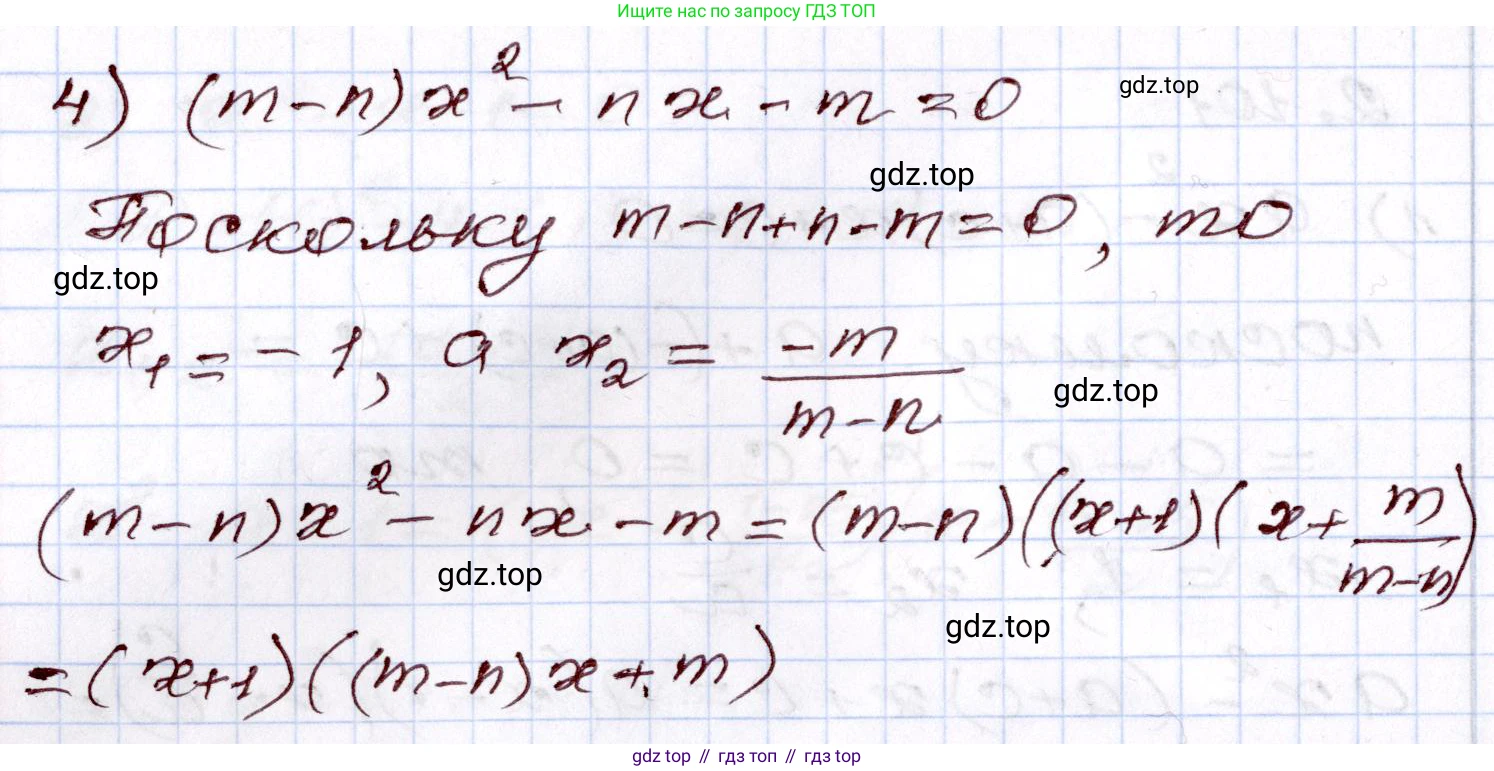 Ищите нас по запросу ГДЗ ТОП
4) (m-n)x² - nx - m = 0
gdz.top
gdz.top
Поскольку m-n+n-m=0, то
gdz.top
x₁ = -1, а x₂ = -m/(m-n)
gdz.top
(m-n)x² - nx - m = (m-n)((x+1)(x + m/(m-n))
gdz.top
gdz.top
= (x+1)((m-n)x + m)
gdz top // гдз топ // гдз top